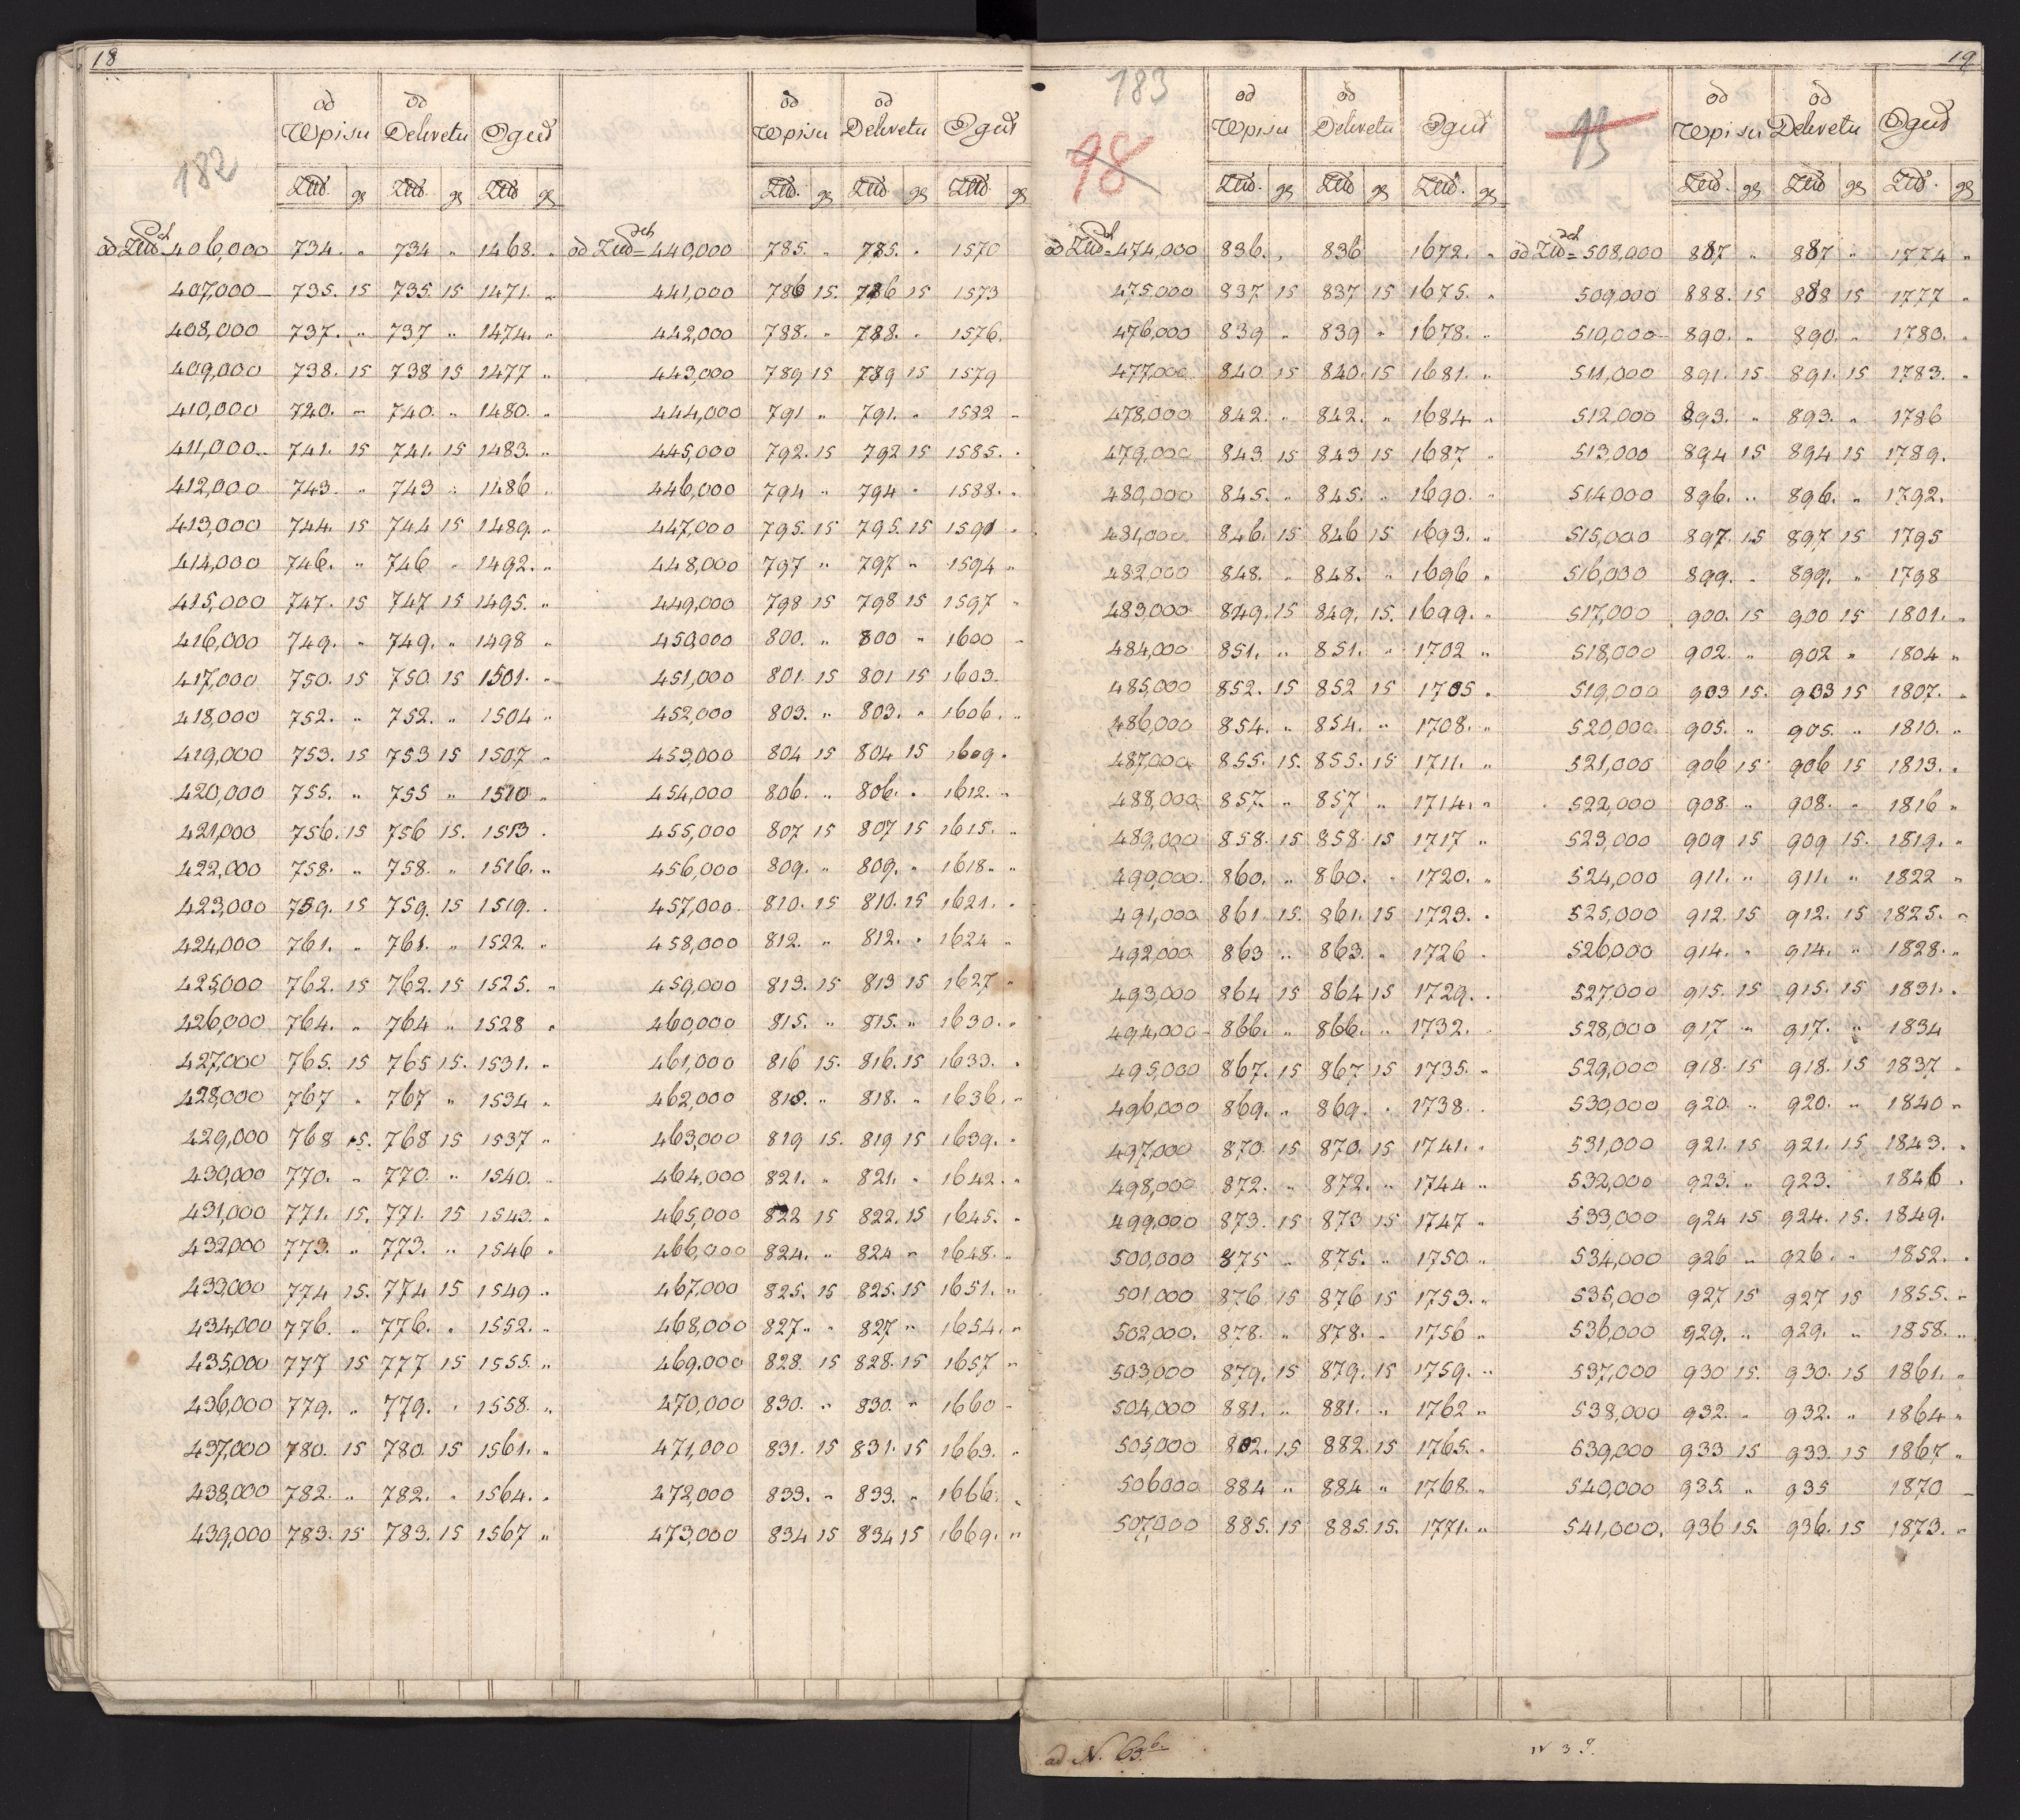 18
182
od Wpisu od Dekretu Oguł
Złł. gr Złł. gr Złł gr
od Złł 406,000 734. " 734 " 1468. "
407,000 735. 15 735. 15 1471. "
408,000 737. " 737 " 1474. "
409,000 738. 15 738 15 1477 "
410,000 740. " 740. " 1480. "
411,000 741. 15 741. 15 1483. "
412,000 743. " 743 " 1486 "
413,000 744. 15 744 15 1489. "
414,000 746. " 746 " 1492. "
415,000 747. 15 747 15 1495. "
416,000 749. " 749. " 1498 "
417,000 750. 15 750. 15 1501. "
418,000 752. " 752. " 1504 "
419,000 753. 15 753 15 1507 "
420,000 755. " 755 " 1510 "
421,000 756. 15 756 15. 1513 .
422,000 758. " 758. " 1516. "
423,000 759. 15 759. 15 1519. .
424,000 761. " 761. " 1522. "
425,000 762. 15 762. 15 1525. "
426,000 764. " 764 " 1528 "
427,000 765. 15 765 15. 1531. "
428,000 767 " 767 " 1534 "
429,000 768 15. 768 15 1537 "
430,000 770. " 770. " 1540. "
431,000 771. 15. 771. 15 1543. "
432,000 773. " 773. " 1546 "
433,000 774 15. 774 15 1549 "
434,000 776. " 776. " 1552. "
435,000 777 15 777 15 1555. "
436,000 779. " 779. " 1558. "
437,000 780. 15 780. 15 1561. "
438,000 782. " 782. " 1564. "
439,000 783. 15 783. 15 1567 "
od Wpisu od Dekretu Oguł
Złł. gr Złł gr Złł gr
od Złł 440,000 785. " 785. " 1570
441,000 786 15. 786 15 1573
442,000 788. " 788. " 1576.
443,000 789 15 789 15 1579
444,000 791 " 791. " 1582 "
445,000 792. 15 792 15 1585. "
446,000 794 " 794 " 1588. "
447,000 795. 15 795. 15 1591 "
448,000 797 " 797 " 1594 "
449,000 798 15 798 15 1597 "
450,000 800. " 800 " 1600 "
451,000 801. 15 801 15 1603.
452,000 803. " 803. " 1606. "
453,000 804 15 804 15 1609 "
454,000 806. " 806. " 1612. "
455,000 807 15 807 15 1615. "
456,000 809. " 809. " 1618. "
457,000 810. 15 810. 15 1621. "
458,000 812. " 812. " 1624 "
459,000 813. 15 813 15 1627 "
460,000 815. " 815. " 1630. "
461,000 816 15. 816. 15 1633. "
462,000 818. " 818. " 1636. "
463,000 819 15. 819 15 1639. "
464,000 821. " 821. " 1642. "
465,000 822 15 822. 15 1645. "
466,000 824. " 824 " 1648. "
467,000 825. 15 825. 15 1651. "
468,000 827 " 827 " 1654. "
469,000 828. 15 828. 15 1657 "
470,000 830. " 830. " 1660 "
471,000 831. 15 831. 15 1663. "
472,000 833. " 833. " 1666. "
473,000 834 15 834 15 1669. "
19
183
98
od Wpisu od Dekretu Oguł
Złł. gr Złł gr Złł. gr
od Złł 474,000 836. " 836 1672. "
475,000 837 15 837 15 1675. "
476,000 839 " 839 " 1678. "
477,000 840 15 840. 15 1681. "
478,000 842. " 842. " 1684. "
479,000 843 15 843 15 1687 "
480,000 845. " 845. " 1690. "
481,000 846. 15 846 15 1693. "
482,000 848. " 848. " 1696 "
483,000 849. 15 849. 15. 1699. "
484,000 851. " 851. " 1702 "
485,000 852. 15 852 15 1705 "
486,000 854. " 854. " 1708. "
487,000 855. 15. 855. 15 1711. "
488,000 857. " 857 " 1714. "
489,000 858. 15 858. 15 1717 "
490,000 860. " 860. " 1720. "
491,000 861. 15. 861. 15 1723. "
492,000 863 " 863. " 1726 "
493,000 864 15 864 15 1729. "
494,000 866. " 866. " 1732. "
495,000 867. 15 867 15 1735. "
496,000 869. " 869. " 1738. "
497,000 870. 15 870. 15 1741. "
498,000 872. " 872. " 1744 "
499,000 873. 15 873 15 1747 "
500,000 875 " 875. " 1750. "
501,000 876. 15 876 15 1753. "
502,000. 878. " 878. " 1756 "
503,000 879. 15 879. 15 1759. "
504,000 881. " 881. " 1762 "
505,000 882. 15 882. 15 1765. "
506,000 884 " 884 " 1768. "
507,000 885. 15 885. 15. 1771. "
od Wpisu od Dekretu Oguł
Złł. gr Złł gr Złł. gr
od Złł 508,000 887 " 887 " 1774 "
509,000 888. 15 888 15 1777 "
510,000 890. " 890. " 1780. "
511,000 891. 15 891. 15 1783. "
512,000 893. " 893. " 1786
513,000 894 15 894 15 1789.
514,000 896. " 896. " 1792.
515,000 897. 15 897 15 1795
516,000 899. " 899. " 1798
517,000 900. 15 900 15 1801. "
518,000 902. " 902 " 1804 "
519,000 903 15. 903 15 1807. "
520,000 905. " 905. " 1810. "
521,000 906 15 906 15 1813. "
522,000 908. " 908. " 1816 "
523,000 909 15 909 15. 1819. "
524,000 911. " 911. " 1822 "
525,000 912. 15 912. 15 1825. "
526,000 914. " 914. " 1828. "
527,000 915. 15 915. 15 1831. "
528,000 917 " 917. " 1834
529,000 918. 15 918. 15 1837 "
530,000 920. " 920. " 1840 "
531,000 921. 15 921. 15 1843. "
532,000 923. " 923. 1846 "
533,000 924 15 924. 15. 1849.
534,000 926 " 926. " 1852. "
535,000 927 15 927 15 1855. "
536,000 929. " 929. " 1858. "
537,000 930 15. 930. 15 1861. "
538,000 932. " 932. " 1864 "
539,000 933 15 933. 15 1867 "
540,000 935. " 935 1870 "
541,000. 936 15. 936. 15 1873. "
ad N. 63.b.